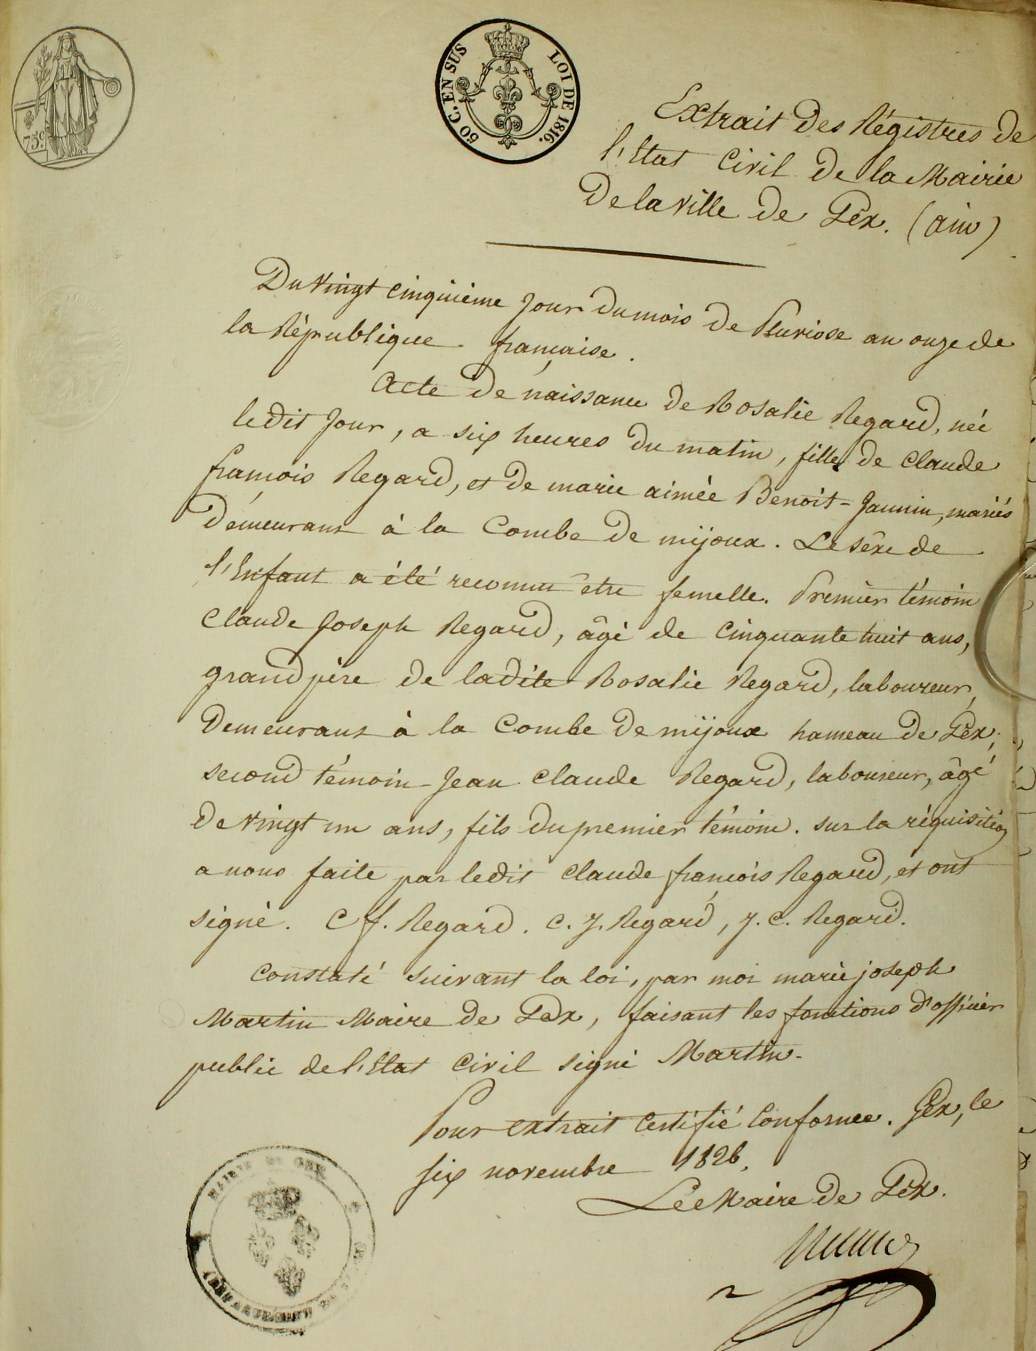 75c
50 C. EN SUS
LOI DE 1816.
Extrait des Régistres de
l'Etat Civil de la Mairie
De la Ville de Gex. (ain)
Du Vingt cinquième jour du mois de Pluviose an onze de
la République française.
Acte de naissance de Rosalie Regard, née
ledit jour, a six heures du matin, fille de claude
françois Regard, et de marie aimée Benoit-Jannin, mariés
demeurant à la Combe de mijoux. Le sêxe de
l'Enfant a été reconnu être femelle. Premier témoin
Claude Joseph Regard, âgé de cinquante huit ans,
grand père de ladite Rosalie Regard, laboureur,
demeurant à la Combe de mijoux hameau de Gex;
second témoin Jean Claude Regard, laboureur, âgé
de vingt un ans, fils du premier témoin. sur la réquisition
a nous faite par ledit Claude françois Regard, et ont
signé. C f. Regard. C. J. Regard, J. C. Regard.
Constaté suivant la loi, par moi marie joseph
Martin Maire de Gex, faisant les fonctions d'officier
public de l'Etat Civil signé Martin.
Pour extrait Certifié Conforme. Gex, le
six novembre 1826.
Le Maire de Gex.
MAIRIE DE GEX